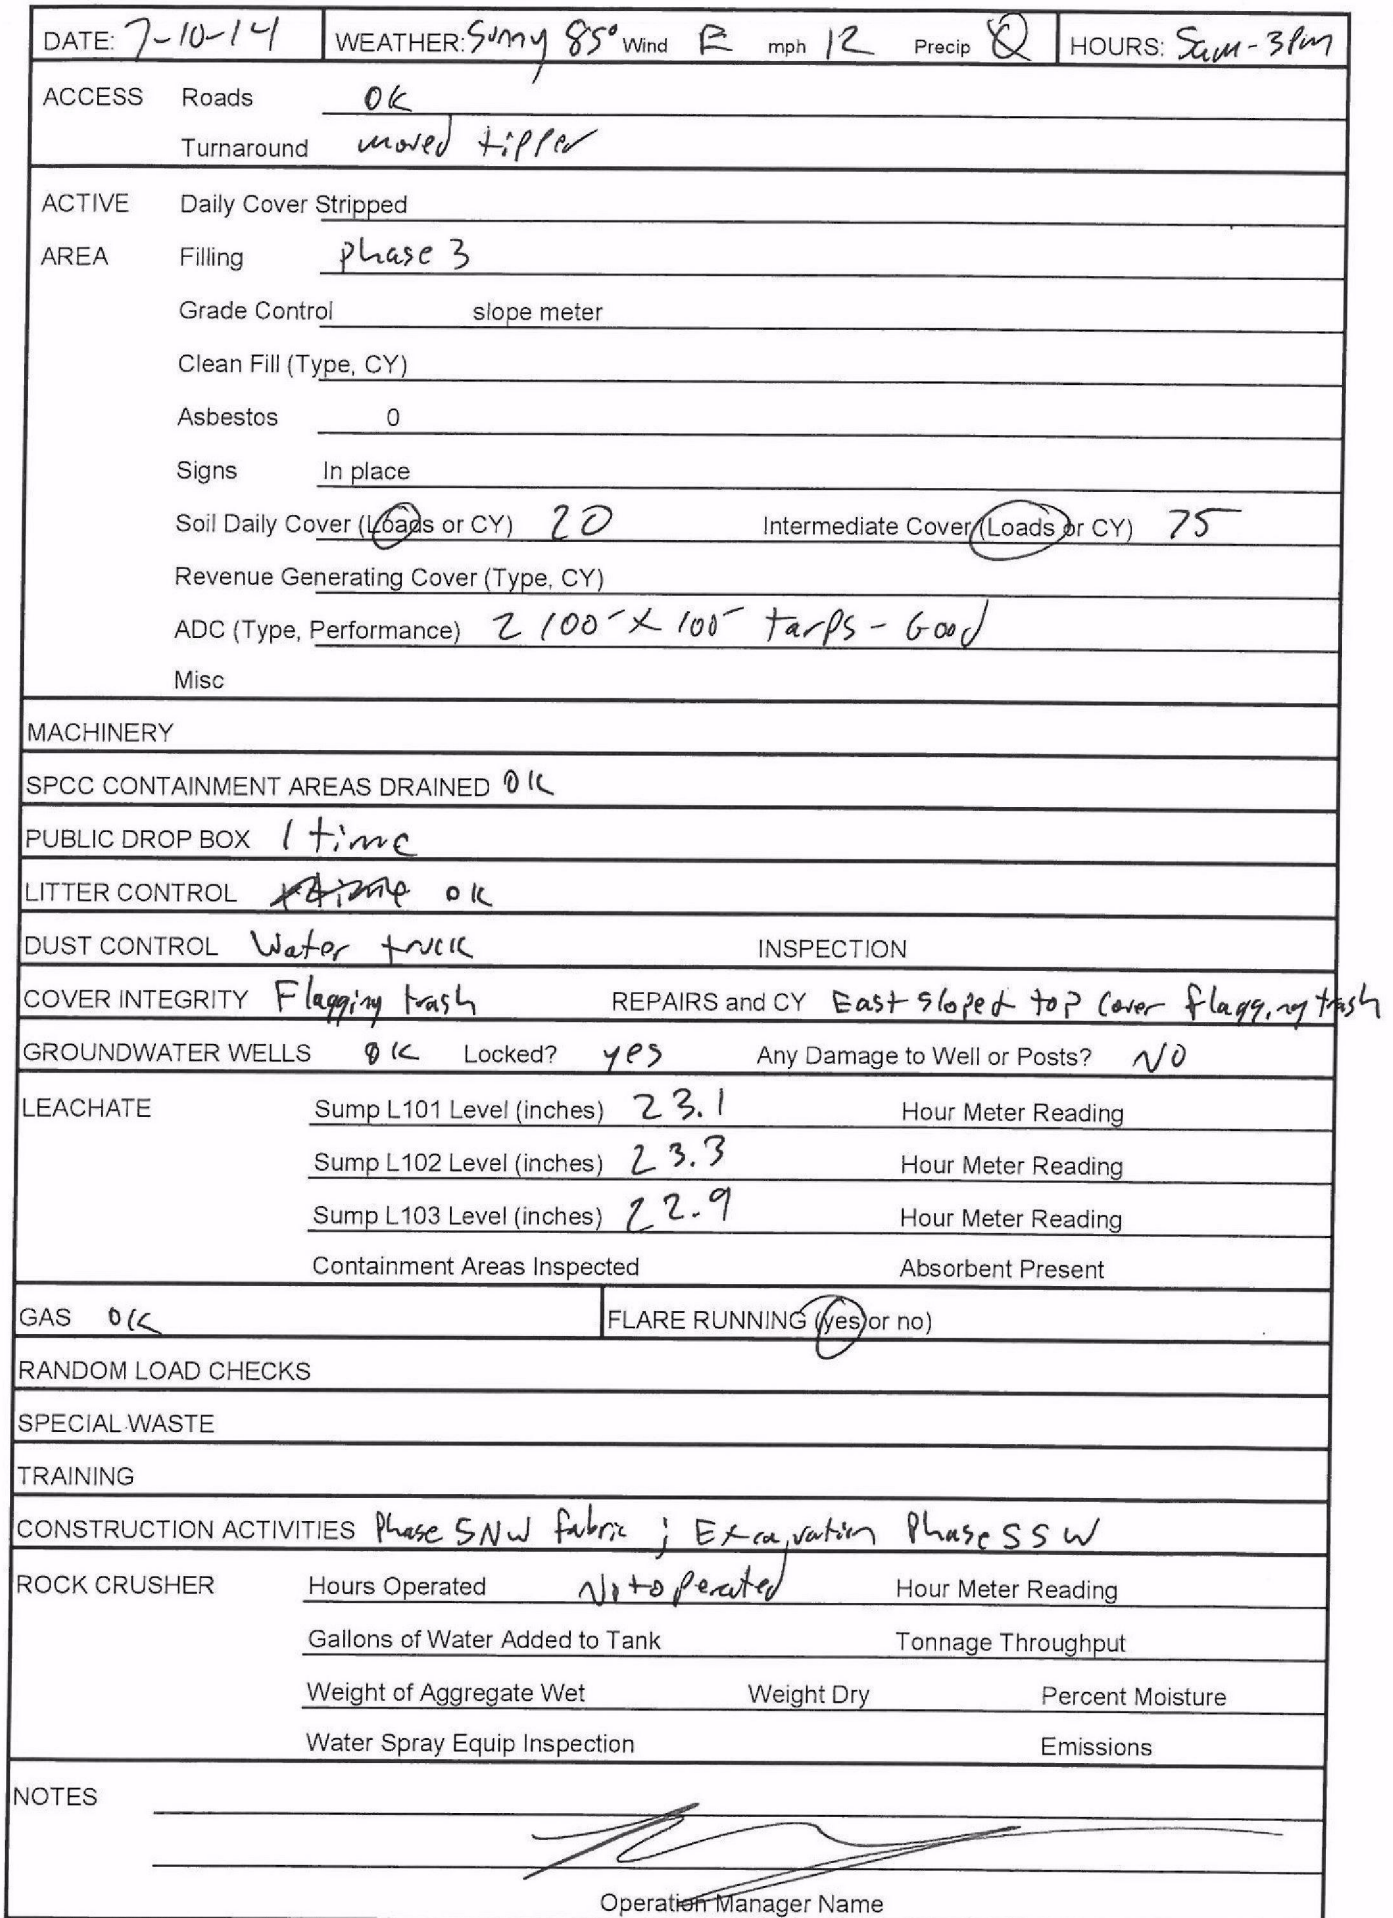 DATE: 7-10-14 WEATHER: Sunny 85° Wind E mph 12 Precip 0 HOURS: 5am-3pm
ACCESS Roads OK
Turnaround moved tipper
ACTIVE Daily Cover Stripped
AREA Filling phase 3
Grade Control slope meter
Clean Fill (Type, CY)
Asbestos 0
Signs In place
Soil Daily Cover (Loads or CY) 20 Intermediate Cover (Loads or CY) 75
Revenue Generating Cover (Type, CY)
ADC (Type, Performance) 2 100' x 100' tarps - Good
Misc
MACHINERY
SPCC CONTAINMENT AREAS DRAINED OK
PUBLIC DROP BOX 1 time
LITTER CONTROL OK
DUST CONTROL Water truck INSPECTION
COVER INTEGRITY Flagging trash REPAIRS and CY East slope & top cover flagging trash
GROUNDWATER WELLS OK Locked? yes Any Damage to Well or Posts? NO
LEACHATE Sump L101 Level (inches) 23.1 Hour Meter Reading
Sump L102 Level (inches) 23.3 Hour Meter Reading
Sump L103 Level (inches) 22.9 Hour Meter Reading
Containment Areas Inspected Absorbent Present
GAS OK FLARE RUNNING (yes or no)
RANDOM LOAD CHECKS
SPECIAL WASTE
TRAINING
CONSTRUCTION ACTIVITIES Phase 5NW fabric ; Excavation Phase 5SW
ROCK CRUSHER Hours Operated Not operated Hour Meter Reading
Gallons of Water Added to Tank Tonnage Throughput
Weight of Aggregate Wet Weight Dry Percent Moisture
Water Spray Equip Inspection Emissions
NOTES
Operation Manager Name